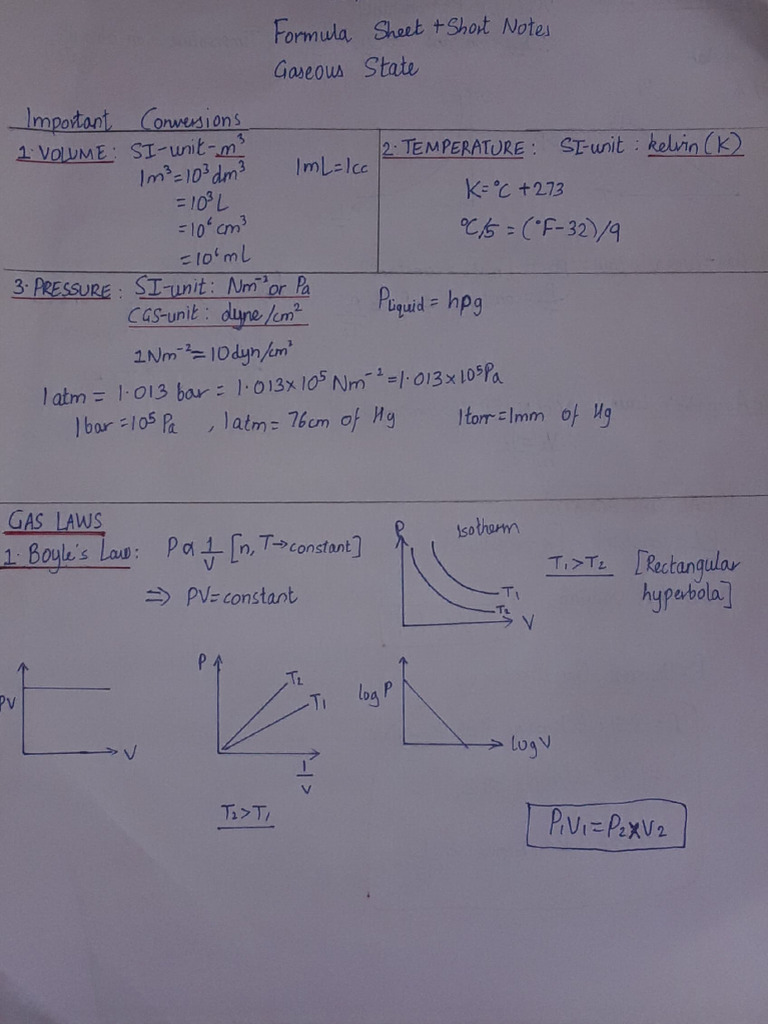 Formula Sheet + Short Notes
Gaseous State
Important Conversions
1. VOLUME: SI-unit-m³
1m³=10³dm³
=10³L
=10⁶cm³
=10⁶mL
1mL=1cc
2. TEMPERATURE: SI-unit: kelvin(K)
K=°C+273
°C/5=(°F-32)/9
3. PRESSURE: SI-unit: Nm⁻² or Pa
CGS-unit: dyne/cm²
1Nm⁻²=10dyn/cm²
Pliquid=hρg
1atm=1.013 bar=1.013×10⁵Nm⁻²=1.013×10⁵Pa
1bar=10⁵Pa, 1atm=76cm of Hg 1torr=1mm of Hg
GAS LAWS
1. Boyle's Law: P∝1/V [n,T→constant]
⇒ PV=constant
P
Isotherm
T₁
T₂
V
T₁>T₂ [Rectangular
hyperbola]
PV
V
P
T₂
T₁
1/V
T₂>T₁
log P
log V
P₁V₁=P₂×V₂